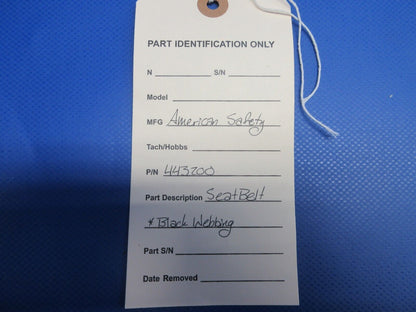 PART IDENTIFICATION ONLY
N S/N
Model
MFG American Safety
Tach/Hobbs
P/N 443200
Part Description SeatBelt
& Black Webbing
Part S/N
Date Removed